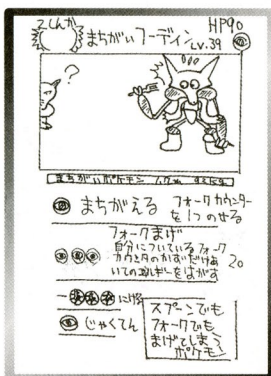 2しんか
まちがいフーディン LV.39
HP90
?
まちがいポケモン
まちがえる
フォークカウンター
を1つのせる
フォークまげ
自分についているフォーク
カウンタのかずだけあ
いてのエネルギーをはがす
20
にげる
じゃくてん
スプーンでも
フォークでも
まげてしまう
ポケモン